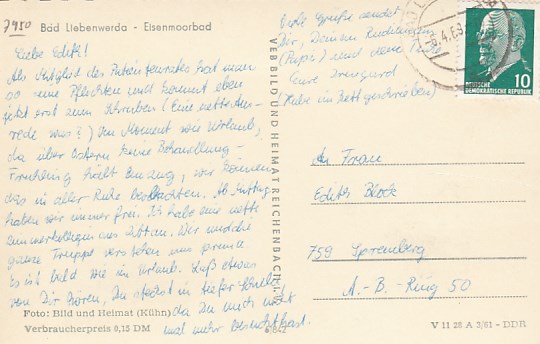 7950 Bad Liebenwerda - Eisenmoorbad
Liebe Edith!
Als Mitglied des Patientenrates hat man
so seine Pflichten und kommt eben
jetzt erst zum Schreiben (Eine nette Aus-
rede was?) Im Moment wie Urlaub,
da über Ostern keine Behandlung -
Frühling hielt Einzug, wir können
das in aller Ruhe beobachten. Ab Mittag
haben wir immer frei. Ich habe eine nette
Zimmerkollegin aus Zittau. Wir
ganze Truppe verstehen uns prima
Es ist bald wie im Urlaub. Laß etwas
von Dir hören, Du steckst in tiefer Schuld
da Du mich nicht
mal mehr besucht hast.
Foto: Bild und Heimat (Kühn)
Verbraucherpreis 0,15 DM
VEB BILD UND HEIMAT REICHENBACH I. V.
Viele Grüße sendet
Dir, Deinem
(Papi) und
Eure Irmgard
(Habe im Bett geschrieben)
DEUTSCHE
DEMOKRATISCHE REPUBLIK
10
An Frau
Edith Block
759 Spremberg
A.-B.-Ring 50
V 11 28 A 3/61 - DDR